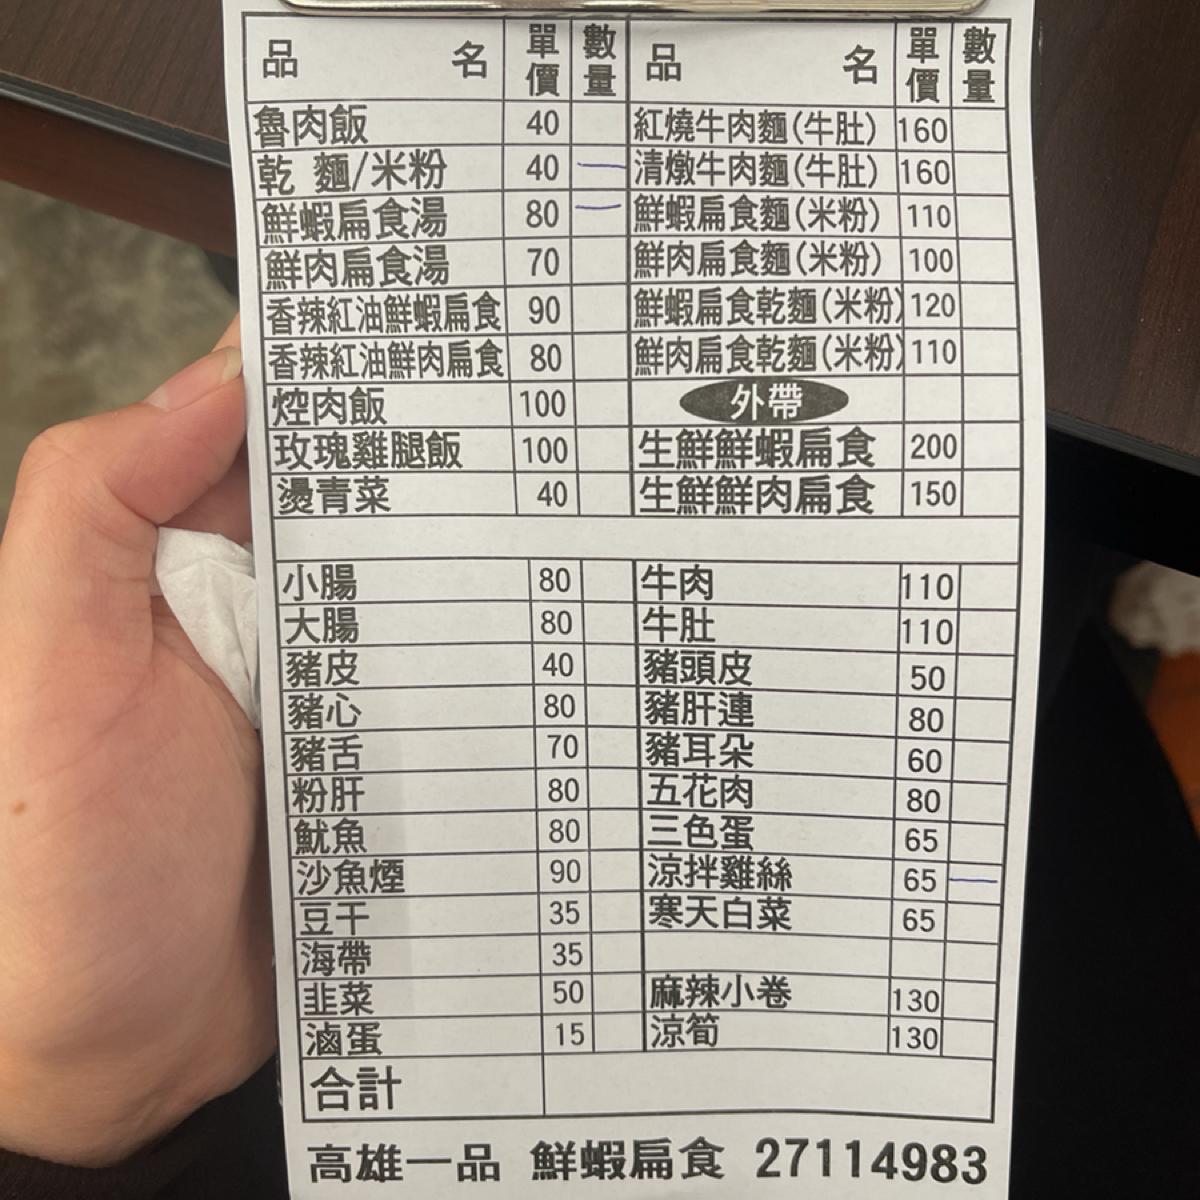 品名 單價 數量 品名 單價 數量
魯肉飯 40 紅燒牛肉麵(牛肚) 160
乾 麵/米粉 40 一 清燉牛肉麵(牛肚) 160
鮮蝦扁食湯 80 一 鮮蝦扁食麵(米粉) 110
鮮肉扁食湯 70 鮮肉扁食麵(米粉) 100
香辣紅油鮮蝦扁食 90 鮮蝦扁食乾麵(米粉) 120
香辣紅油鮮肉扁食 80 鮮肉扁食乾麵(米粉) 110
焢肉飯 100 外帶
玫瑰雞腿飯 100 生鮮鮮蝦扁食 200
燙青菜 40 生鮮鮮肉扁食 150
小腸 80 牛肉 110
大腸 80 牛肚 110
豬皮 40 豬頭皮 50
豬心 80 豬肝連 80
豬舌 70 豬耳朵 60
粉肝 80 五花肉 80
魷魚 80 三色蛋 65
沙魚煙 90 涼拌雞絲 65 一
豆干 35 寒天白菜 65
海帶 35
韭菜 50 麻辣小卷 130
滷蛋 15 涼筍 130
合計
高雄一品 鮮蝦扁食 27114983